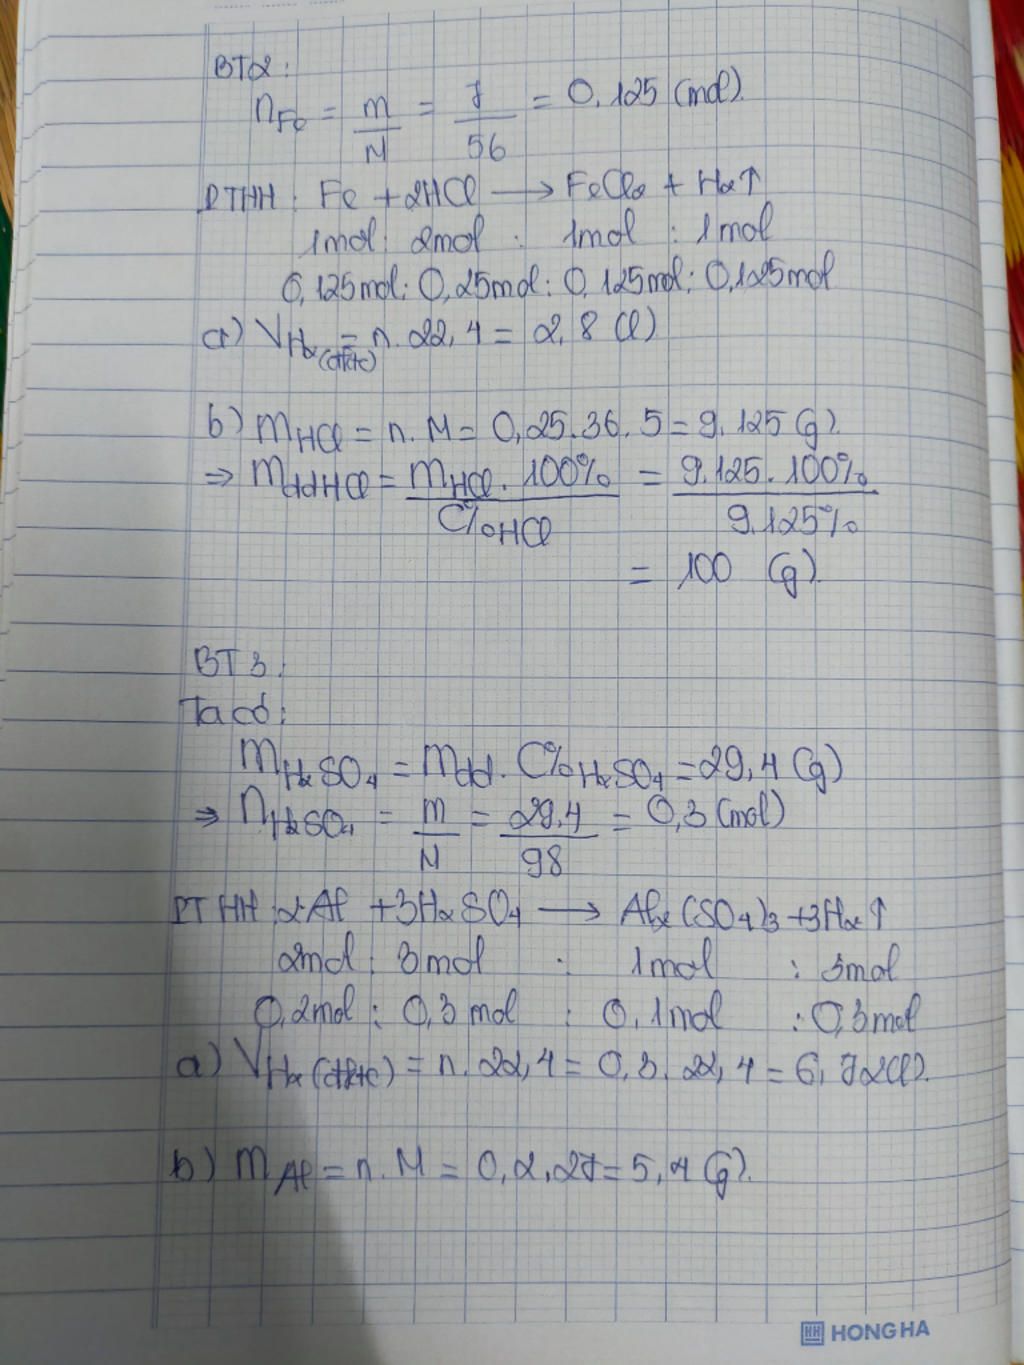 BT2:
nFe = m/M = 7/56 = 0,125 (mol).
PTHH: Fe + 2HCl → FeCl2 + H2↑
1mol : 2mol : 1mol : 1mol
0,125mol : 0,25mol : 0,125mol : 0,125mol
a) VH2(đktc) = n.22,4 = 2,8 (l)
b) mHCl = n.M = 0,25.36,5 = 9,125 (g).
⇒ mddHCl = mHCl.100%/C%HCl = 9,125.100%/9,125%
= 100 (g)
BT3:
Ta có:
mH2SO4 = mdd.C%H2SO4 = 29,4 (g)
⇒ nH2SO4 = m/M = 29,4/98 = 0,3 (mol)
PTHH: 2Al + 3H2SO4 → Al2(SO4)3 + 3H2↑
2mol : 3mol : 1mol : 3mol
0,2mol : 0,3mol : 0,1mol : 0,3mol
a) VH2(đktc) = n.22,4 = 0,3.22,4 = 6,72(l).
b) mAl = n.M = 0,2.27 = 5,4 (g).
HH HONG HA